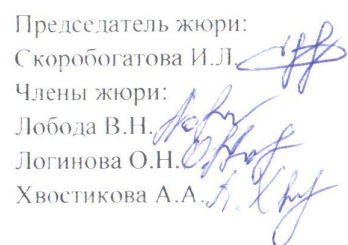 Председатель жюри:
Скоробогатова И.Л.
Члены жюри:
Лобода В.Н.
Логинова О.Н.
Хвостикова А.А.